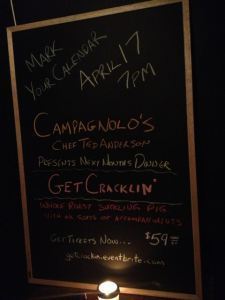 MARK
YOUR CALENDAR
APRIL 17
7PM
CAMPAGNOLO'S
CHEF TED ANDERSON
PRESENTS NEXT MONTHS DINNER
"GET CRACKLIN"
WHOLE ROAST SUCKLING PIG
WITH ALL SORTS OF ACCOMPANIMENTS
GET TICKETS NOW... $59
getcracklin.eventbrite.com